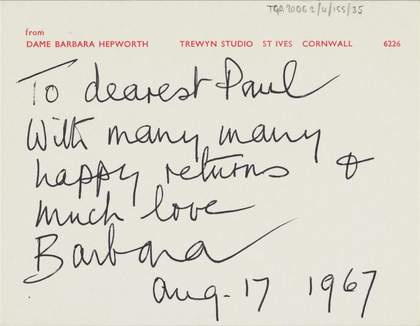 TGA 20062/4/155/35
from
DAME BARBARA HEPWORTH TREWYN STUDIO ST IVES CORNWALL 6226
To dearest Paul
With many many
happy returns &
much love
Barbara
Aug. 17 1967